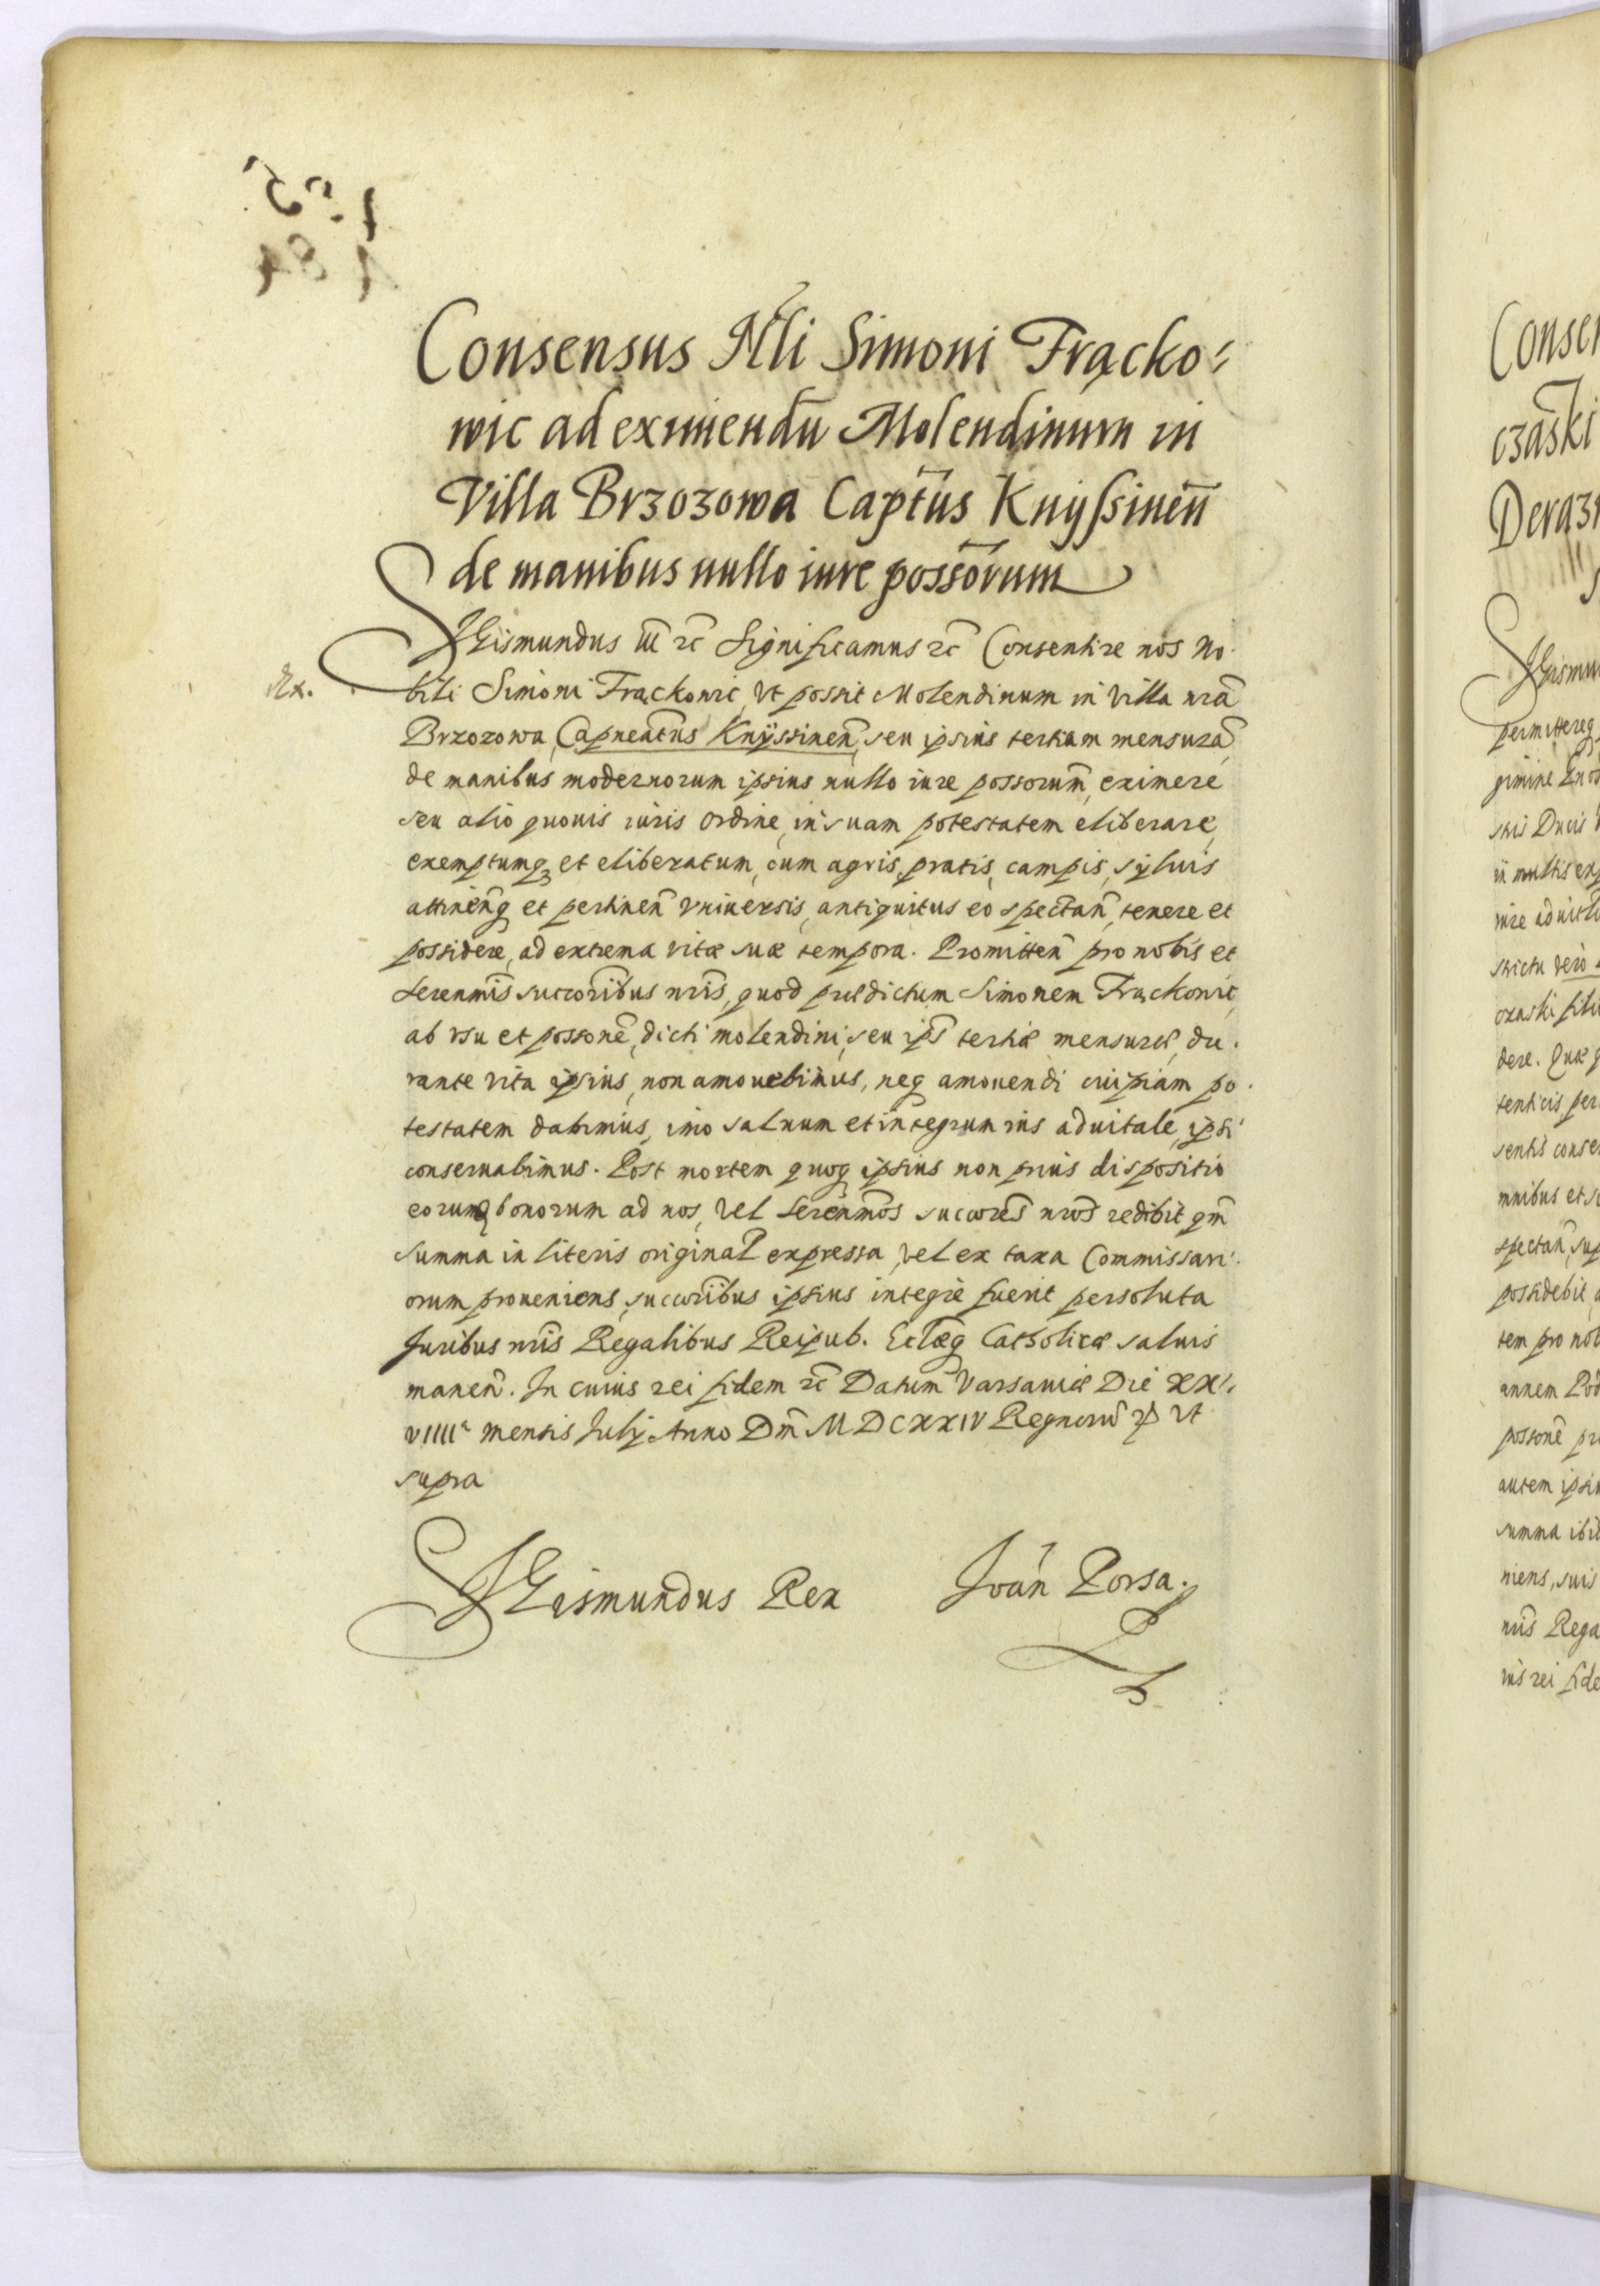 Consensus Nli Simoni Frącko⸗
wic ad eximendū Molendinum in
Villa Brzozowa Captūs Knyssineñ
de manibus nullo iure possorum
SIgismundus III etc Significamus etc Consentire nos No-
Ex.
bili Simoni Frąckowic, Vt possit Molendinum in Villa nrã
Brzozowa, Capneatūs Knyssineñ, seu ipsius tertiam mensurã,
de manibus modernorum ipsius nullo iure possorum, eximere
seu alio quouis iuris ordine, in suam potestatem eliberare,
exemptumq, et eliberatum, cum agris, pratis, campis, syluis
attineñq et pertineñ vniuersis, antiquitus eo spectañ, tenere et
possidere, ad extrema vitæ suæ tempora. Promitteñ pro nobis et
Serenmis succoribus nris, quod prædictum Simonem Frąckowic,
ab vsu et possone, dicti molendini, seu ips tertiæ mensuræ, du-
rante vita ipsius, non amouebimus, neq amouendi cuipiam po-
testatem dabimus, imo saluum et integrum ius aduitale, ipsi
conseruabimus. Post mortem quoq ipsius non prius dispositio
eorumq bonorum ad nos, Vel Serenmos succores nros redibit qm
summa in literis original expressa, vel ex taxa Commissari-
orum proueniens, succoribus ipsius integre fuerit persoluta
Juribus nris Regalibus Reipub. Ecclæq Catholicæ saluis
maneñ. In cuius rei fidem etc Datum Varsauiæ Die XX⸗
VIIIIa mensis July Anno Dm MDCXXIV Regnorū etc vt
supra
SIgismundus Rex Joañ Porsa.
Consen
czaski
Deraz
SIgismun
permittereq
gimine
suis Ducis
in multis exp
iure aduit
strictu vero
ozaski fili
dere. Quæ q
tenticis per
sentis conse
mnibus et s
spectañ, sup
possidebit,
tem pro nob
annem Pod
possone pr
autem ipsi
summa ibid
niens, suis
nris Rega
ius rei fide